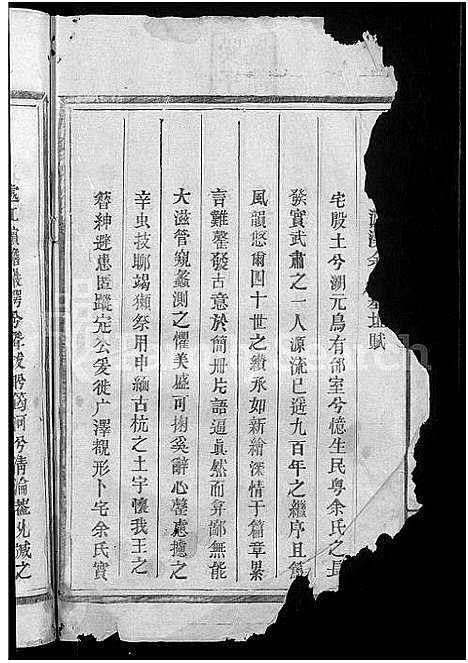 基址賦
宅殷土兮溯元鳥有邰室兮憶生民粵余氏之長
發實武肅之一人源流已遙九百年之繼序且舊
風韻悠爾四十世之纘承如新繪深情于篇章累
言難罄發古意於簡冊片語逼真然而弇鄙無能
大滋管窺蠡測之懼美盛可掬奚辭心罄慮攄之
辛虫技聊竭獺祭用申緬古杭之土宇懷我王之
簪紳避患匿蹤定公爰徙广澤覩形卜宅余氏實